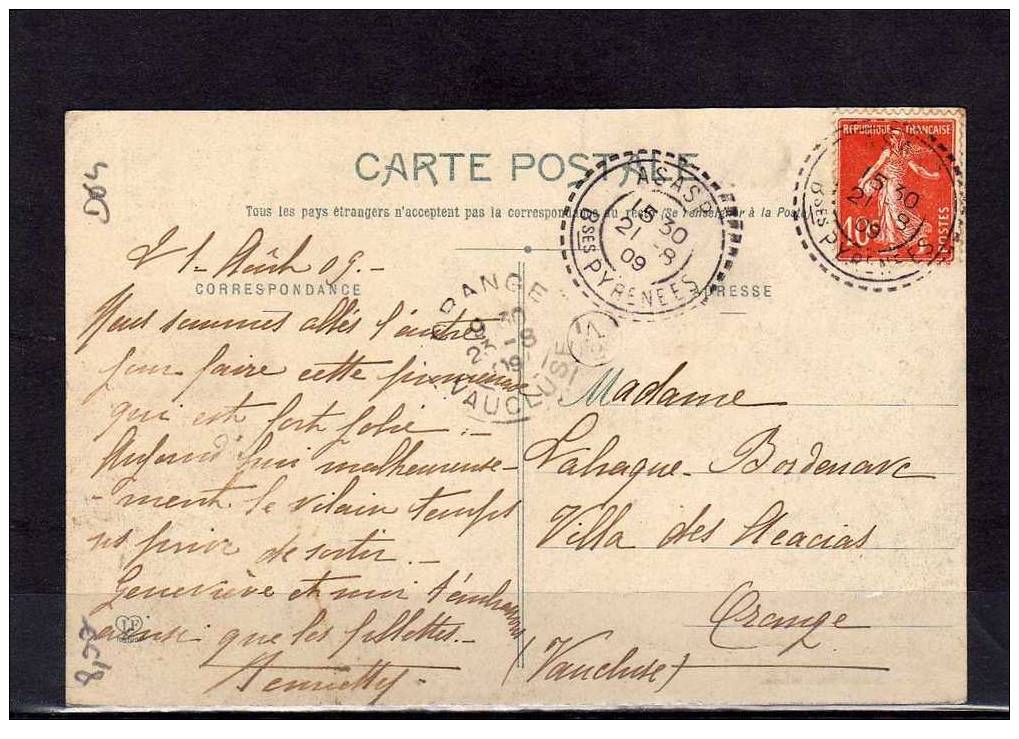 D64
CARTE POSTALE
Tous les pays étrangers n'acceptent pas la correspondance au recto (Se renseigner à la Poste)
REPUBLIQUE FRANÇAISE
10c
POSTES
ASASP
15 30
21 -8
09
BSES PYRENEES
15 30
21 -8
09
BSES PYRENEES
ORANGE
9 30
23 -8
09
VAUCLUSE
CORRESPONDANCE
ADRESSE
21 - Août 09. -
Nous sommes allés l'autre
jour faire cette promenade
qui est fort jolie. -
Aujourd'hui malheureuse-
-ment le vilain temps
ns prive de sortir. -
Geneviève et moi t'embrassons
ainsi que les fillettes. -
Henriette -
Madame
Lahague-Bordenave
Villa des Acacias
Orange
(Vaucluse)